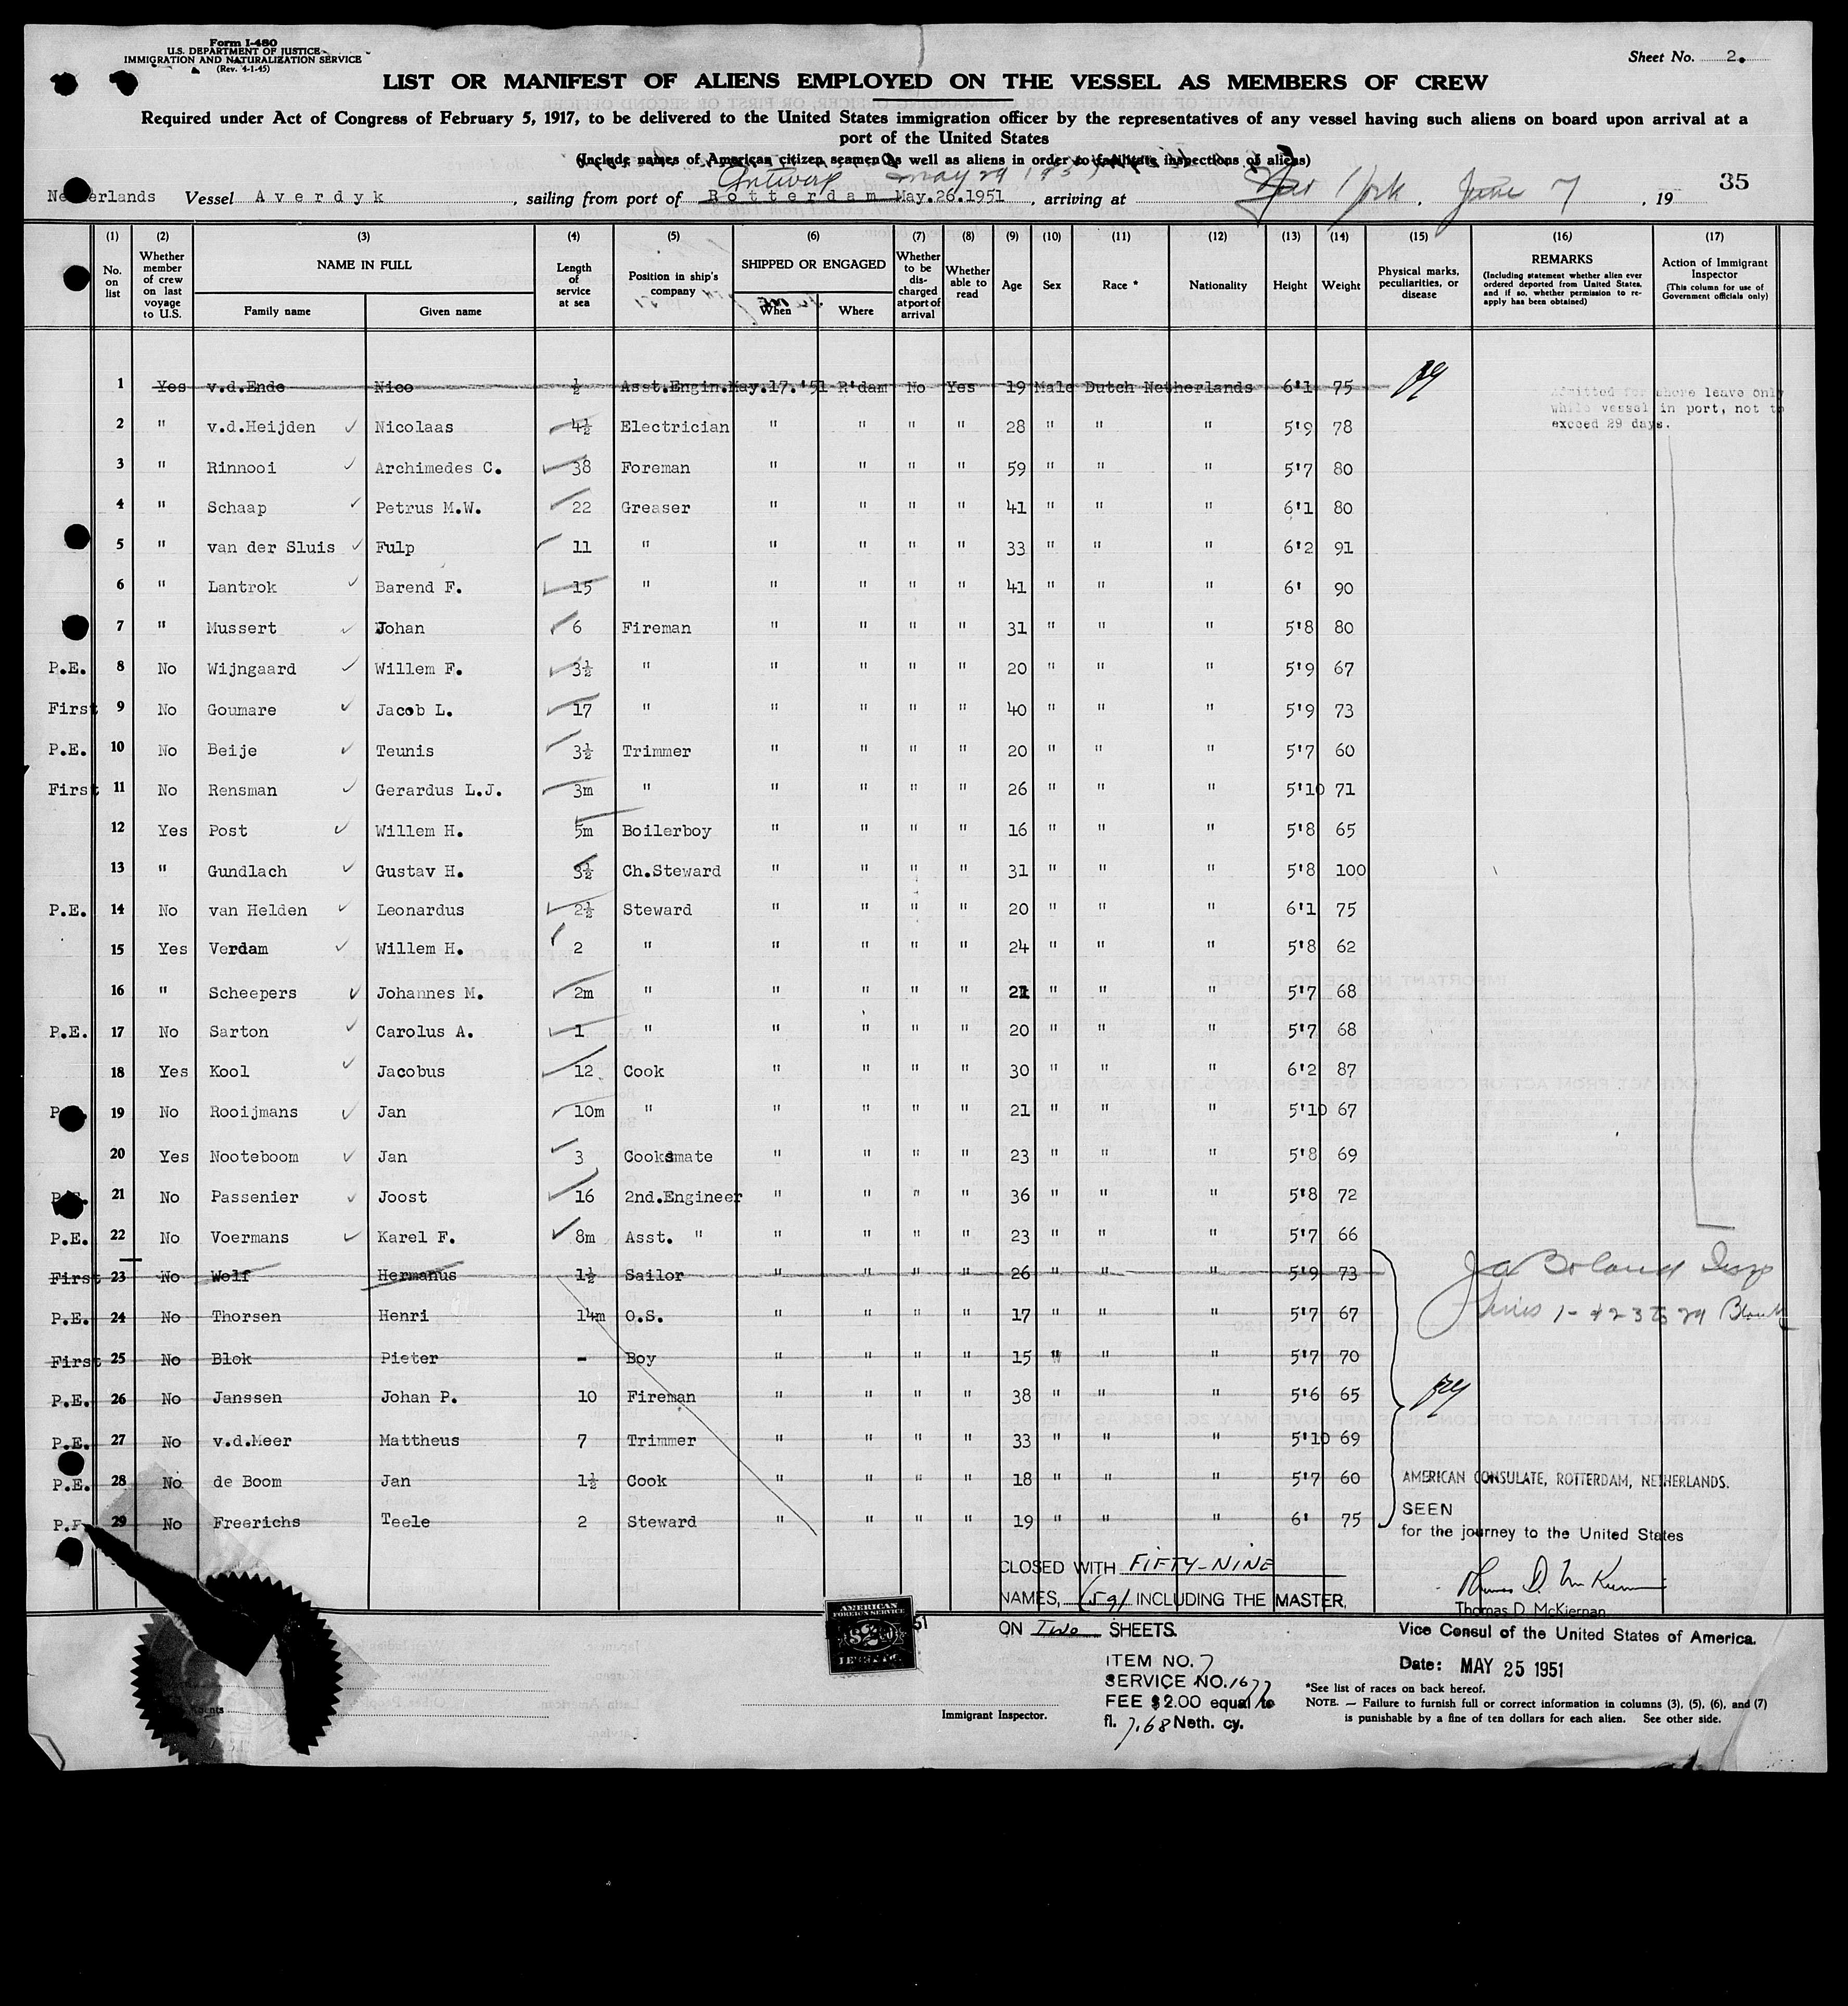 Form I-480
U.S. DEPARTMENT OF JUSTICE
IMMIGRATION AND NATURALIZATION SERVICE
(Rev. 4-1-45)
Sheet No. 2.
LIST OR MANIFEST OF ALIENS EMPLOYED ON THE VESSEL AS MEMBERS OF CREW
Required under Act of Congress of February 5, 1917, to be delivered to the United States immigration officer by the representatives of any vessel having such aliens on board upon arrival at a
port of the United States
(Include names of American citizen seamen as well as aliens in order to facilitate inspections of aliens)
Antwerp May 29 1951
Netherlands Vessel Averdyk , sailing from port of Rotterdam May.26.1951 , arriving at New York , June 7 , 19 35
(1) (2) (3) (4) (5) (6) (7) (8) (9) (10) (11) (12) (13) (14) (15) (16) (17)
No. on list
Whether member of crew on last voyage to U.S.
NAME IN FULL
Family name
Given name
Length of service at sea
Position in ship's company
SHIPPED OR ENGAGED
When
Where
Whether to be discharged at port of arrival
Whether able to read
Age
Sex
Race *
Nationality
Height
Weight
Physical marks, peculiarities, or disease
REMARKS
(Including statement whether alien ever ordered deported from United States, and if so, whether permission to reapply has been obtained)
Action of Immigrant Inspector
(This column for use of Government officials only)
1 Yes v.d.Ende Nico ½ Asst.Engin. May.17.'51 R'dam No Yes 19 Male Dutch Netherlands 6'1 75
Admitted for shore leave only
while vessel in port, not to
exceed 29 days.
2 " v.d.Heijden Nicolaas 4½ Electrician " " " " 28 " " " 5'9 78
3 " Rinnooi Archimedes C. 38 Foreman " " " " 59 " " " 5'7 80
4 " Schaap Petrus M.W. 22 Greaser " " " " 41 " " " 6'1 80
5 " van der Sluis Fulp 11 " " " " " 33 " " " 6'2 91
6 " Lantrok Barend F. 15 " " " " " 41 " " " 6' 90
7 " Mussert Johan 6 Fireman " " " " 31 " " " 5'8 80
P.E. 8 No Wijngaard Willem F. 3½ " " " " " 20 " " " 5'9 67
First 9 No Goumare Jacob L. 17 " " " " " 40 " " " 5'9 73
P.E. 10 No Beije Teunis 3½ Trimmer " " " " 20 " " " 5'7 60
First 11 No Rensman Gerardus L.J. 3m " " " " " 26 " " " 5'10 71
12 Yes Post Willem H. 5m Boilerboy " " " " 16 " " " 5'8 65
13 " Gundlach Gustav H. 3½ Ch.Steward " " " " 31 " " " 5'8 100
P.E. 14 No van Helden Leonardus 2½ Steward " " " " 20 " " " 6'1 75
15 Yes Verdam Willem H. 2 " " " " " 24 " " " 5'8 62
16 " Scheepers Johannes M. 2m " " " " " 21 " " " 5'7 68
P.E. 17 No Sarton Carolus A. 1 " " " " " 20 " " " 5'7 68
18 Yes Kool Jacobus 12 Cook " " " " 30 " " " 6'2 87
19 No Rooijmans Jan 10m " " " " " 21 " " " 5'10 67
20 Yes Nooteboom Jan 3 Cooksmate " " " " 23 " " " 5'8 69
P.E. 21 No Passenier Joost 16 2nd.Engineer " " " " 36 " " " 5'8 72
P.E. 22 No Voermans Karel F. 8m Asst. " " " " " 23 " " " 5'7 66
First 23 No Wolf Hermanus 1½ Sailor " " " " 26 " " " 5'9 73
P.E. 24 No Thorsen Henri 14m O.S. " " " " 17 " " " 5'7 67
First 25 No Blok Pieter - Boy " " " " 15 " " " 5'7 70
P.E. 26 No Janssen Johan P. 10 Fireman " " " " 38 " " " 5'6 65
P.E. 27 No v.d.Meer Mattheus 7 Trimmer " " " " 33 " " " 5'10 69
P.E. 28 No de Boom Jan 1½ Cook " " " " 18 " " " 5'7 60
P.E. 29 No Freerichs Teele 2 Steward " " " " 19 " " " 6' 75
J A Boland Insp
Lines 1- + 23 to 29 Blank
AMERICAN CONSULATE, ROTTERDAM, NETHERLANDS.
SEEN
for the journey to the United States
Thomas D. McKiernan
Vice Consul of the United States of America.
Date: MAY 25 1951
CLOSED WITH FIFTY-NINE
NAMES, (59) INCLUDING THE MASTER,
ON Two SHEETS.
ITEM NO. 7
SERVICE NO. 1677
FEE $2.00 equal to
fl. 7.68 Neth. cy.
AMERICAN
FOREIGN SERVICE
Immigrant Inspector.
*See list of races on back hereof.
NOTE. — Failure to furnish full or correct information in columns (3), (5), (6), and (7)
is punishable by a fine of ten dollars for each alien. See other side.